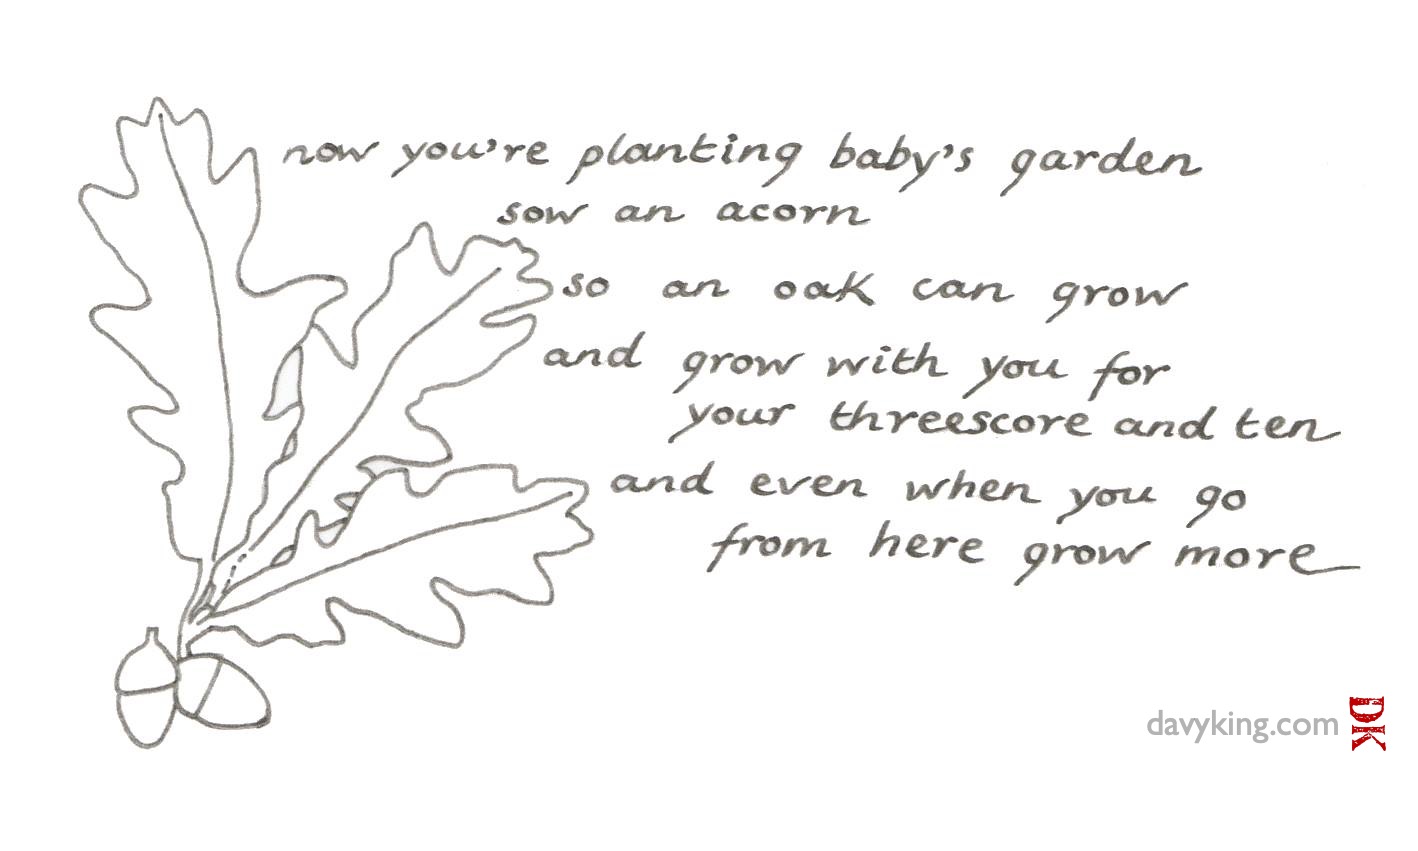 now you're planting baby's garden
sow an acorn
so an oak can grow
and grow with you for
your threescore and ten
and even when you go
from here grow more
davyking.com
DK